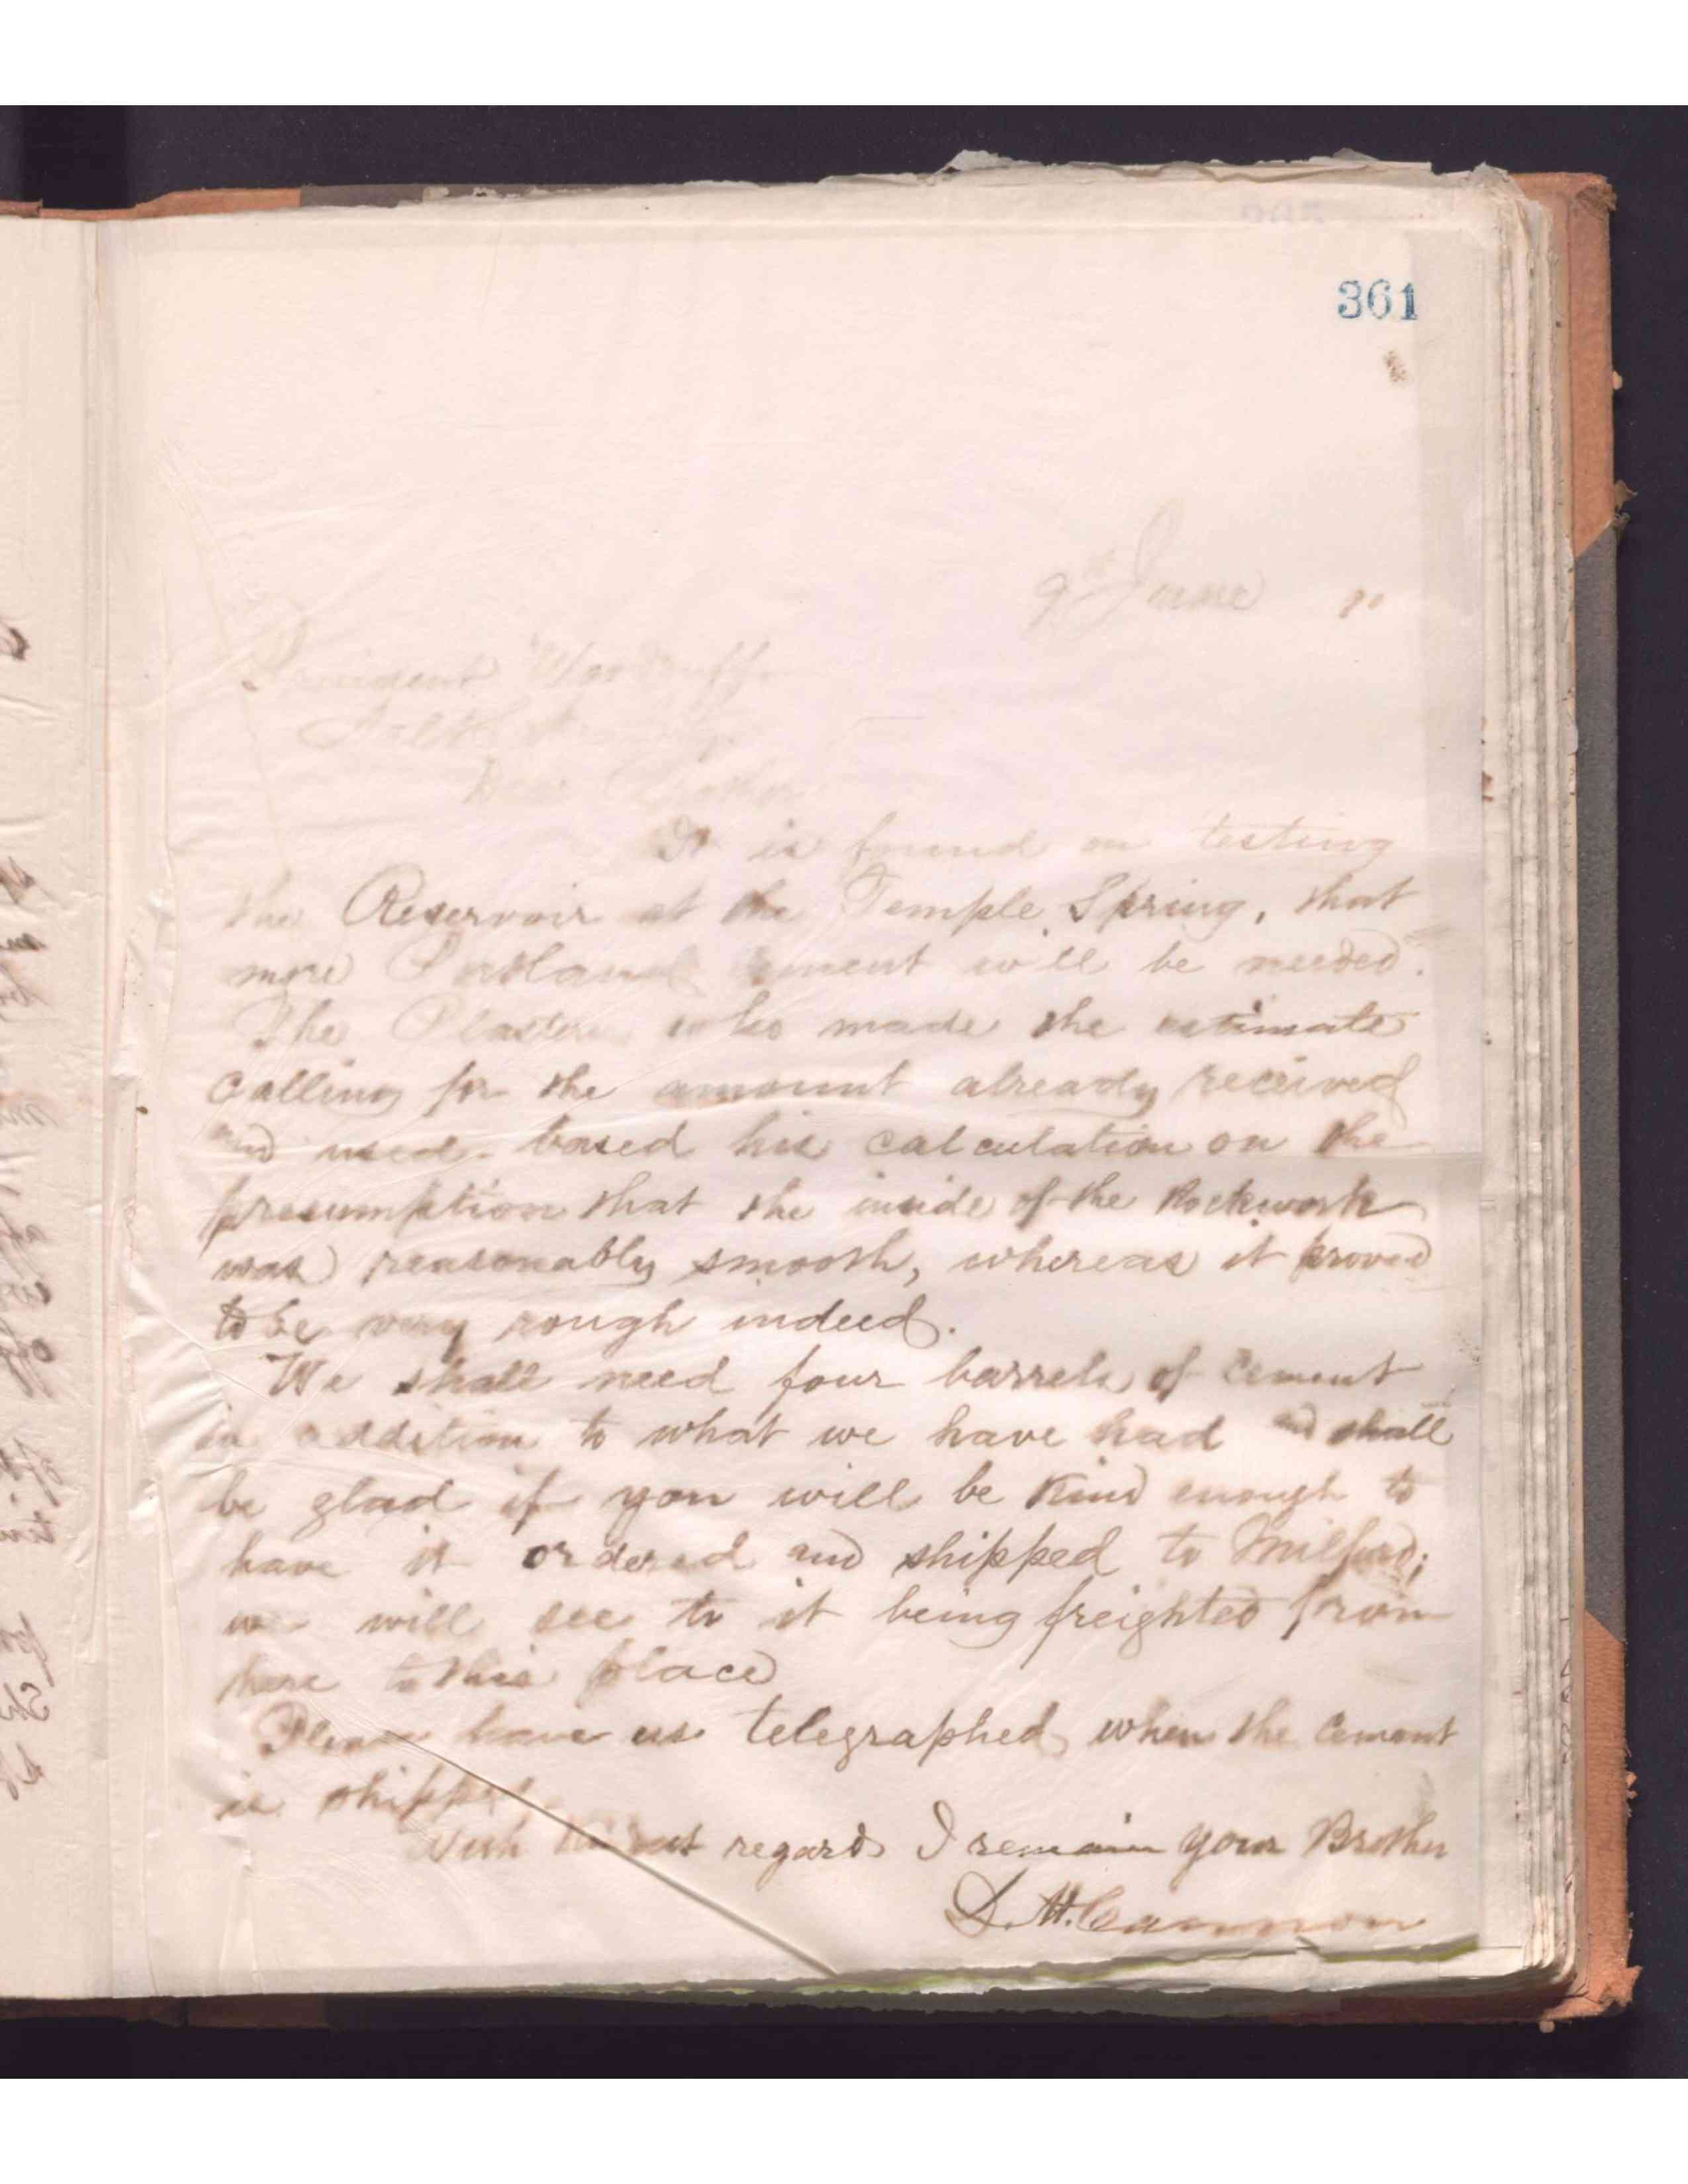 361
9th June 90
President Woodruff
Dear Brother
It is found on testing
the Reservoir at the Temple Spring, that
more Portland Cement will be needed.
The Plasterer who made the estimate
calling for the amount already received
and used based his calculation on the
presumption that the inside of the Rockwork
was reasonably smooth, whereas it proved
to be very rough indeed.
We shall need four barrels of Cement
in addition to what we have had and shall
be glad if you will be kind enough to
have it ordered and shipped to Milford;
we will see to it being freighted from
there to this place
Please have us telegraphed when the Cement
is shipped
With kindest regards I remain your Brother
D. H. Cannon